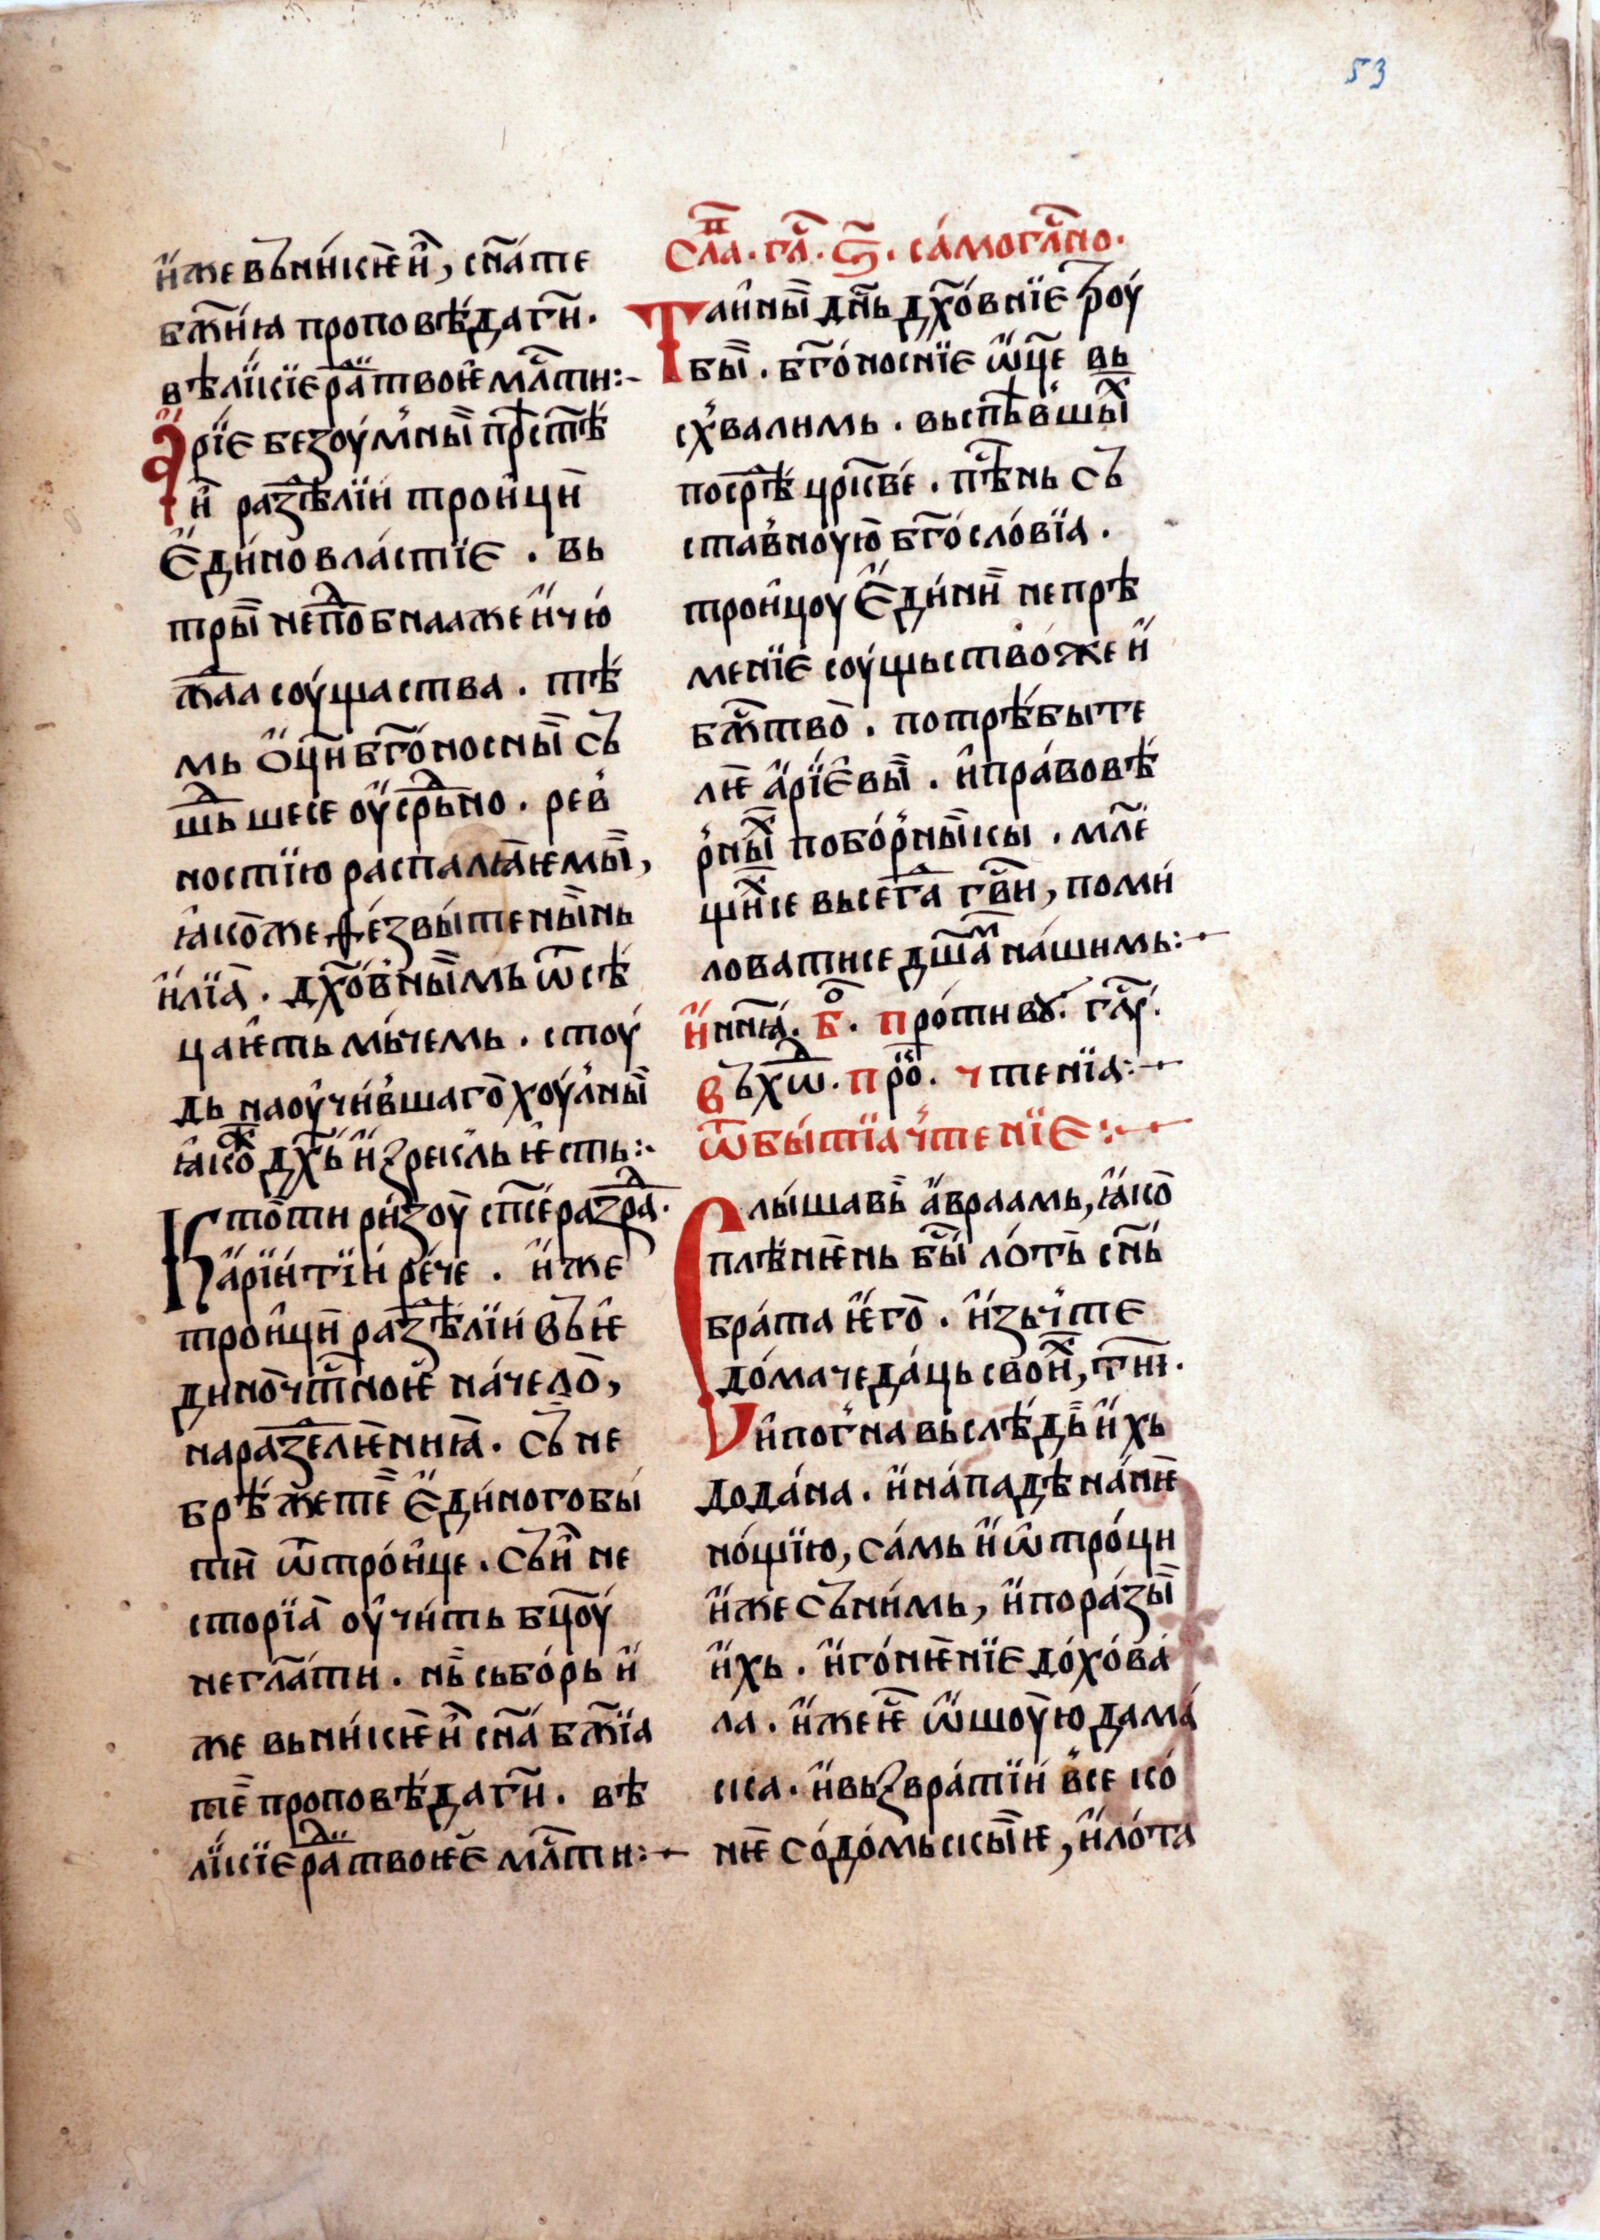 53
и҆́же въ ни́кѥи҆̀, сн҃а те
бж҃їиꙗ проповѣ́да гн҃.
вѣлі́кїе раⷣ твоѥ мл҃ти:-
А҆́рїе безоу́м'ныѝ прⷭ҇тѣ́
и҆̀ раз̾ⷣѣлїи трои҆цѝ
є҆ди́новла́стїе . вь
тры̀и непоⷣбнаа же и҆ чю́
ж҃даа соу́щаства . тѣ́
мь ѻ҆ц҃и бг҃оно́сныѝ съ
шьⷣшесе оу҆срьⷣно . рев̾
ностїю распалꙗ́ѥмыѝ,
ꙗ҆ко́же ѳе́зви́теныѝнь
и҆лїа̀ . дх҃о́в̾ныѝмь ѿсѣ́
цаѥ҆ть мь́чемь . стоу́
дь наоу́чи́в̾шаго̀ хоу́л'ныѝ
ꙗ҆коⷤ дх҃ь и҆зрекль ѥсть:-
Кто̀ ти ри́зоу̀ сп҃се́ раз̾раⷣ.
а҆рїи́ тїи́ ре́че . и҆́же
трои҆цѝ раз̾ⷣѣлїи́ въ ѥ҆
дино̀чт҃ноѥ на́чело̀,
на раз̾ⷣелѥ́ниꙗ̀ . съ̀ не
брѣ́же тѐ є҆ди́ного бы́
тѝ ѿ тро́и҆це . съи҆̀ не
сторїа̀ оу҆чи́ть бц҃оу́
не гл҃а́ти . нь̀ сьбо́рь и҆́
же вь ни́кѥи҆̀ сн҃а́ бж҃їа
тѐ проповѣ́да гн҃. вѣ
лі́кїе раⷣ твоѥѐ мл҃ти:-
Слаⷡ. глⷭ. ѕ҃. са́могла́сно.
Таи҆́ныѝ дн҃ь дх҃о́внїе троу́
быѝ . бг҃о́носнїе ѡ҆ц҃е вь
сх'валимь . вьспѣ́в̾шыѝⷯ
посрⷣѣ́ црк҃ве́ . пѣⷭ҇нь съ
став̾ноую̀ бг҃осло́вїа .
трои҆цоу є҆ди́нѝ непрѣ
менїе соу́щьство̀ же и҆
бжⷭ҇тво̀ . потрѣ́быте
лѥ а҆рїе́выѝ . и҆ пра́вовѣ́
р'ныѝⷯ побо́р'ныѝкы . мл҃е
щиⷯсе вьсегⷣа гв҃и, поми́
ловатисе дш҃аⷨ на́шимь:-
И҆ нн҃ꙗ. бо̀. про́тивꙋ́. глаⷭ.
въхѡⷣ. про̀. чтенїа:-
Ѿ бы́тїа ч'тенїе:-
Слы́шавь̀ а҆враамь, ꙗ҆ко̀
плѣнѥнь бы́ ло́ть̀ сн҃ь
бра́та ѥ҆го̀ . и҆зьч'те
до́мачеда́ць свои́ⷯ, т҃иі.
и҆ пог'на вьслѣ́дь̀ и҆хь
до да́на . и҆ на́паде на́ нѥ
но́щїю, са́мь и҆ ѡ҆тро́ци
и҆́же съ ни́мь, и҆ пора́зыѝ
и҆хь . и҆ го́нѥнїе до́ хо́ва́
ла . и҆́же ѥⷭ҇ ѡ҆шоу́ю дама́
ска . и҆ вьзвра́тїи́ в̾се ко́
нѥ со́до́мьскыѝѥ, и҆ ло́та